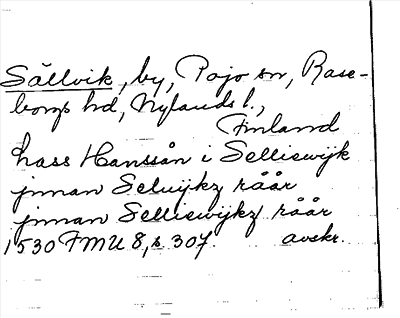 Sällvik, by, Pojo sn, Rase-
borgs hd, Nylands l.,
Finland
Lass Hanssån i Selliswijk
jnnan Seluijkz råår
jnnan Selliswijkz råår
1530 FMU 8, s. 307. avskr.